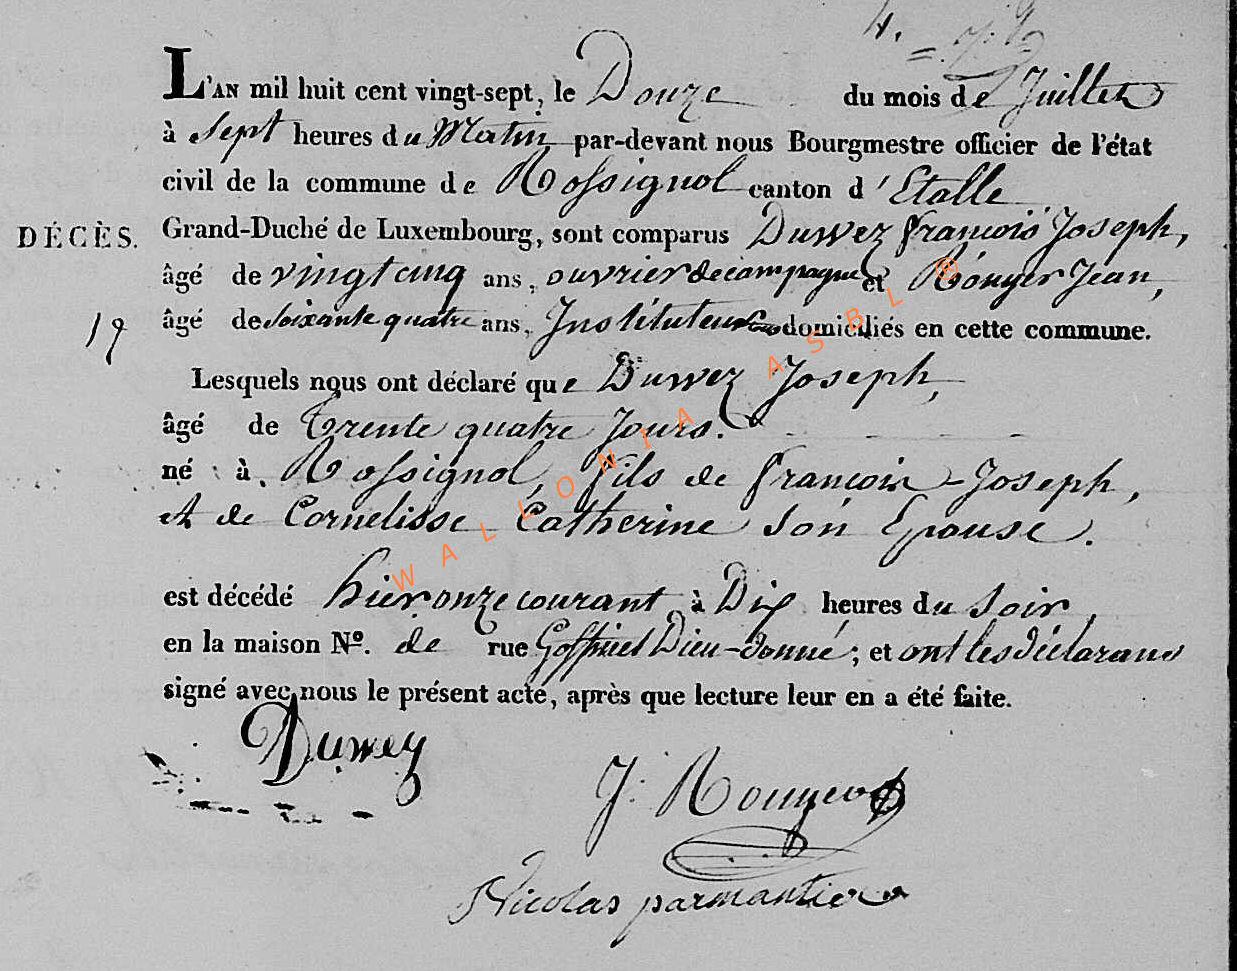 4.
L'AN mil huit cent vingt-sept, le Douze du mois de Juillet
à sept heures du Matin par-devant nous Bourgmestre officier de l'état
civil de la commune de Rossignol canton d'Etalle
DÉCÈS.
Grand-Duché de Luxembourg, sont comparus Duwez françois Joseph,
âgé de vingt cinq ans, ouvrier de campagne et Rouger Jean,
19
âgé de soixante quatre ans, Instituteur tous domiciliés en cette commune.
Lesquels nous ont déclaré que Duwez Joseph,
âgé de Trente quatre Jours.
né à Rossignol, fils de françois-Joseph,
et de Cornelisse Catherine son Epouse.
est décédé hier onze courant à Dix heures du soir,
en la maison Nº. de rue Goffinet Dieu-donné; et ont les déclarans
signé avec nous le présent acte, après que lecture leur en a été faite.
Duwez
J. Rouger
Nicolas parmantier
WALLONIA ASBL ®